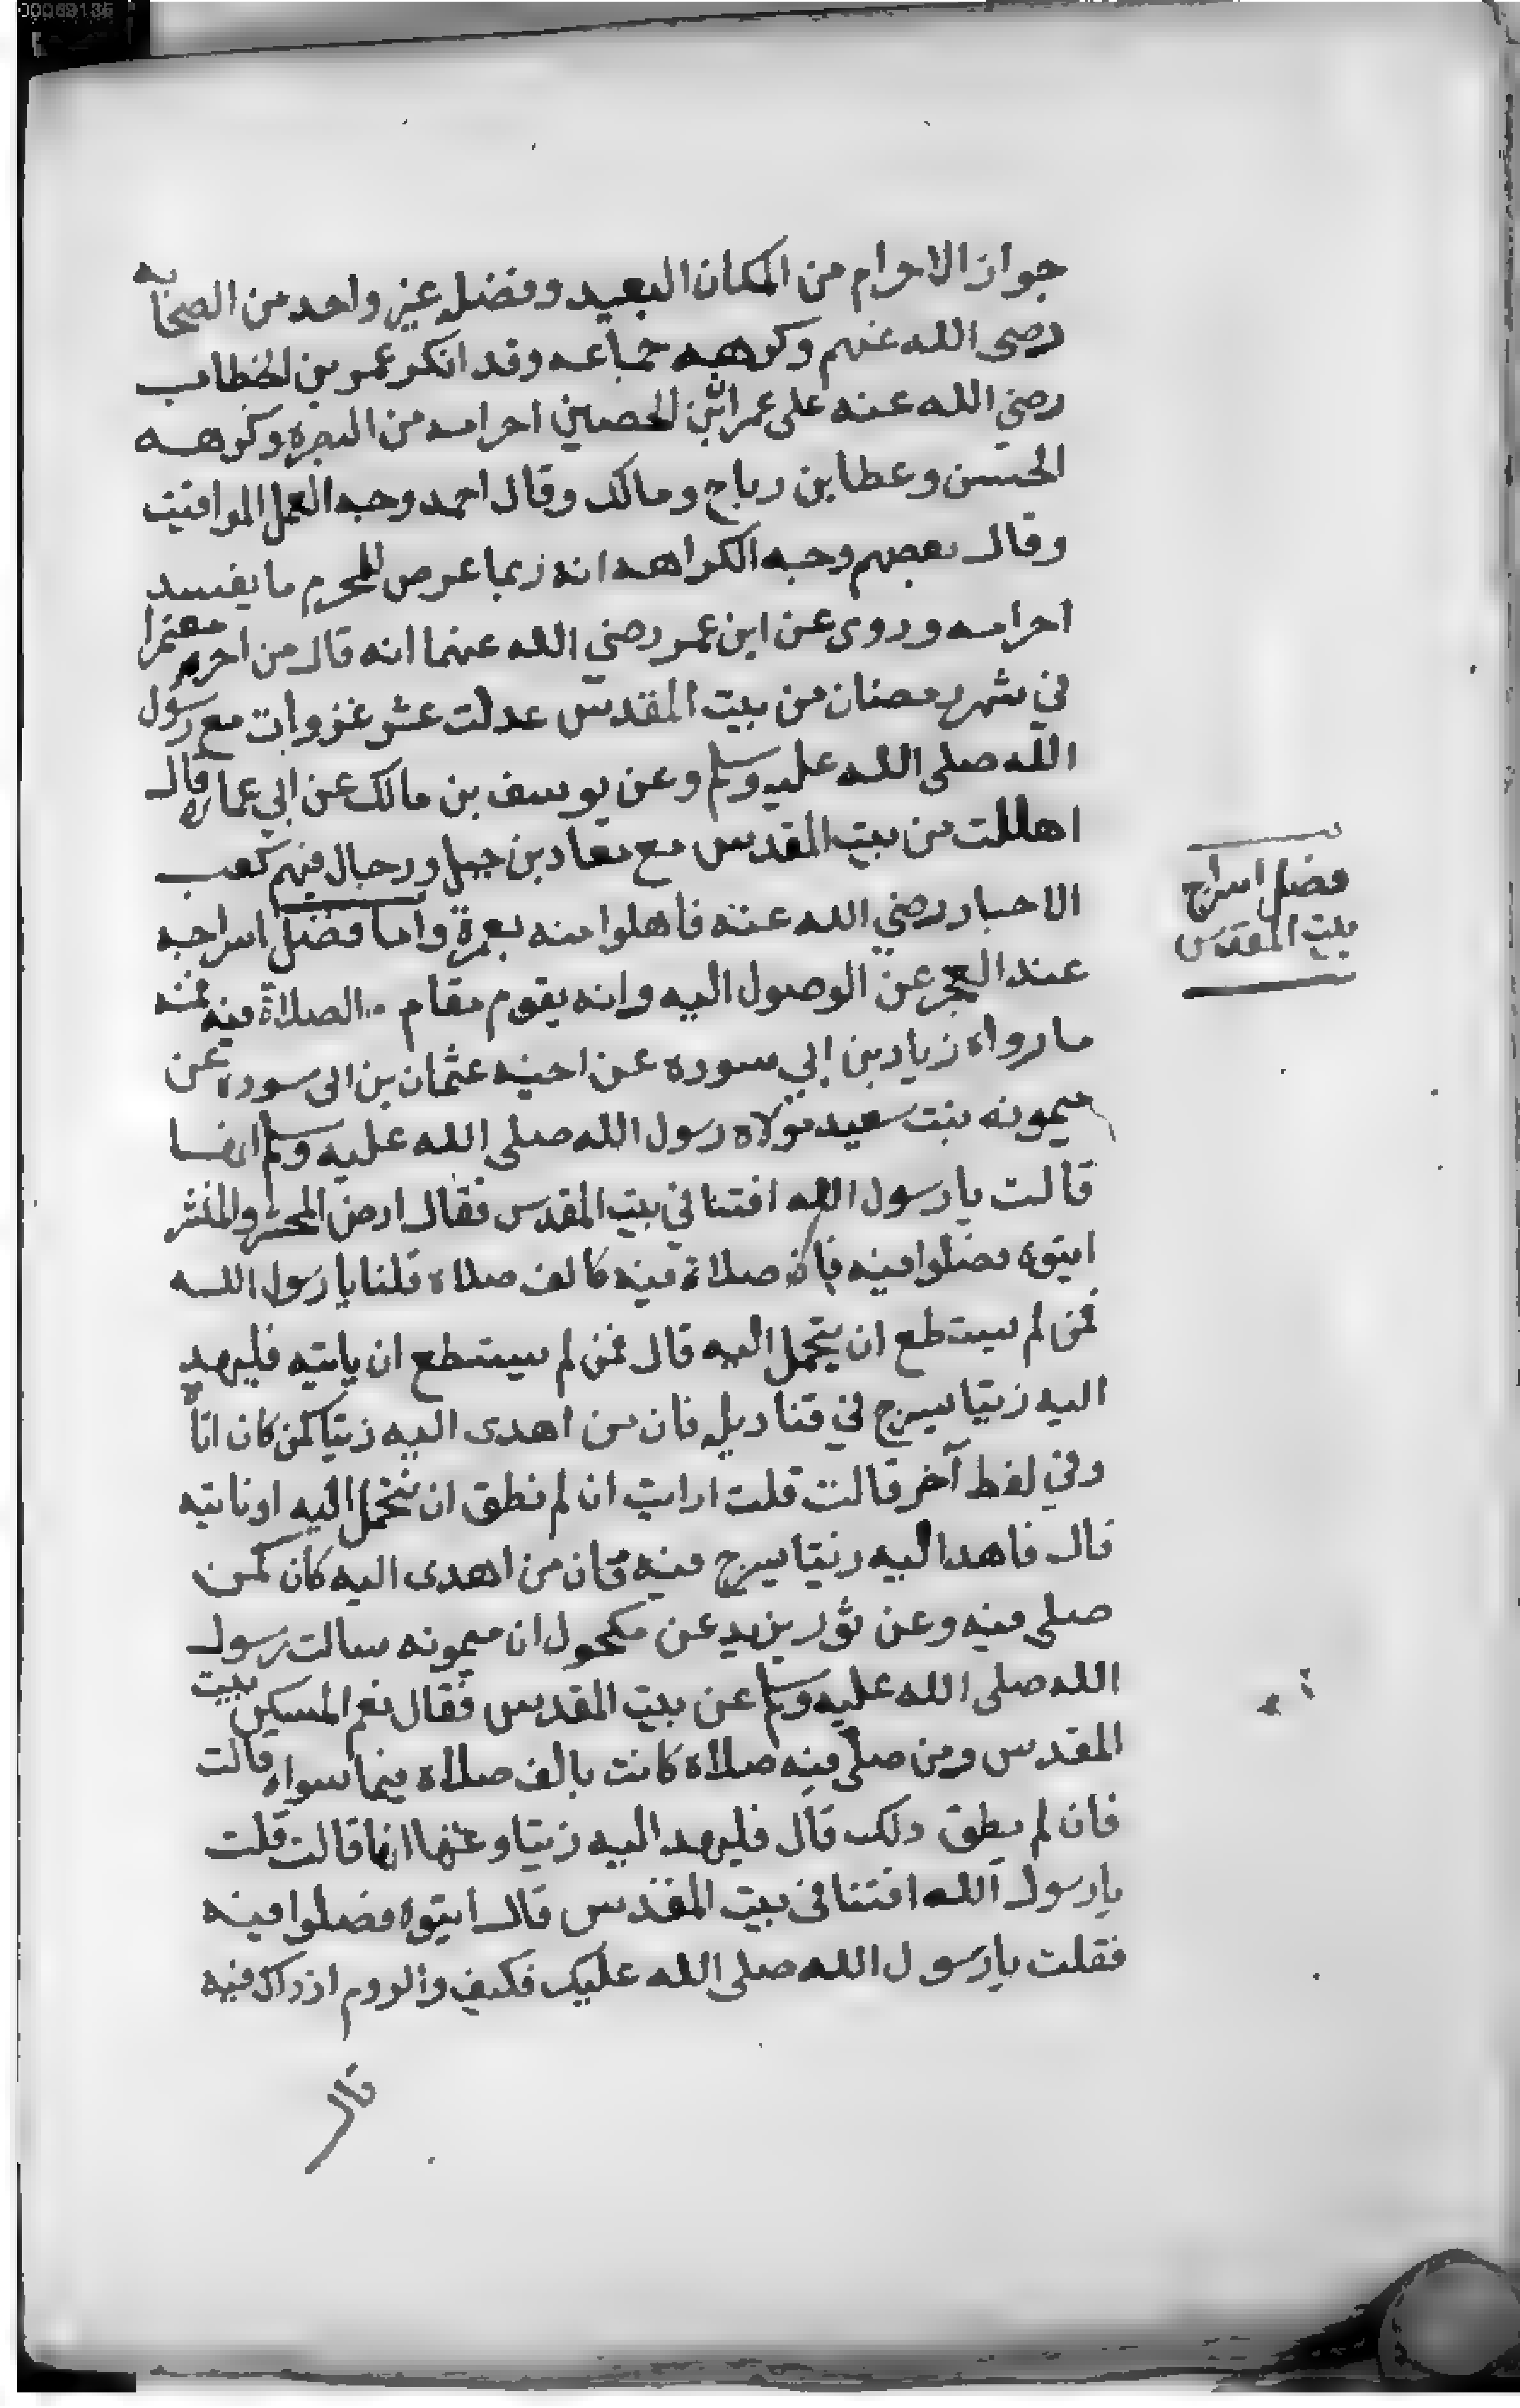 جواز الاحرام من المكان البعيد وفضله غير واحد من الصحابه
رضى الله عنهم وكرهه جماعه وقد انكر عمر بن الخطاب
رضي الله عنه على عمران بن الحصين احرامه من البصرة وكرهه
الحسن وعطا بن رباح ومالك وقال احمد وجه العمل المواقيت
وقال بعضهم وجه الكراهه انه ربما عرض للمحرم ما يفسد
احرامه وروى عن ابن عمر رضي الله عنهما انه قال من احرم معتمرا
في شهر رمضان من بيت المقدس عدلت عشر غزوات مع رسول
الله صلى الله عليه وسلم وعن يوسف بن مالك عن ابي عماره قال
اهللت من بيت المقدس مع معاذ بن جبل ورجال فيهم كعب
الاحبار رضي الله عنه فاهلوا منه بعمرة واما فضل اسراجه
عند العجز عن الوصول اليه وانه يقوم مقام الصلاة فيه فمنه
فضل اسراج
بيت المقدس
ما رواه زياد بن ابي سوده عن اخيه عثمان بن ابى سوده عن
ميمونه بنت سعيد مولاه رسول الله صلى الله عليه وسلم انها
قالت يا رسول الله افتنا في بيت المقدس فقال ارض المحشر والمنشر
ايتوه فصلوا فيه فان صلاة فيه كالف صلاه قلنا يا رسول الله
فمن لم يستطع ان يتحمل اليه قال فمن لم يستطع ان ياتيه فليهد
اليه زيتا يسرج في قناديله فان من اهدى اليه زيتا كمن كان اتاه
وفي لفظ آخر قالت قلت ارايت ان لم نطق ان نتحمل اليه او ناتيه
قال فاهدا اليه زيتا يسرج فيه فان من اهدى اليه كان كمن
صلى فيه وعن ثور بن يزيد عن مكحول ان ميمونه سالت رسول
الله صلى الله عليه وسلم عن بيت المقدس فقال نعم المسكن بيت
المقدس ومن صلى فيه صلاه كانت بالف صلاه فيما سواه قالت
فان لم يطق ذلك قال فليهد اليه زيتا وعنها انها قالت قلت
يا رسول الله افتنا فى بيت المقدس قال ايتوه فصلوا فيه
فقلت يا رسول الله صلى الله عليك فكيف والروم اذ ذاك فيه
قال